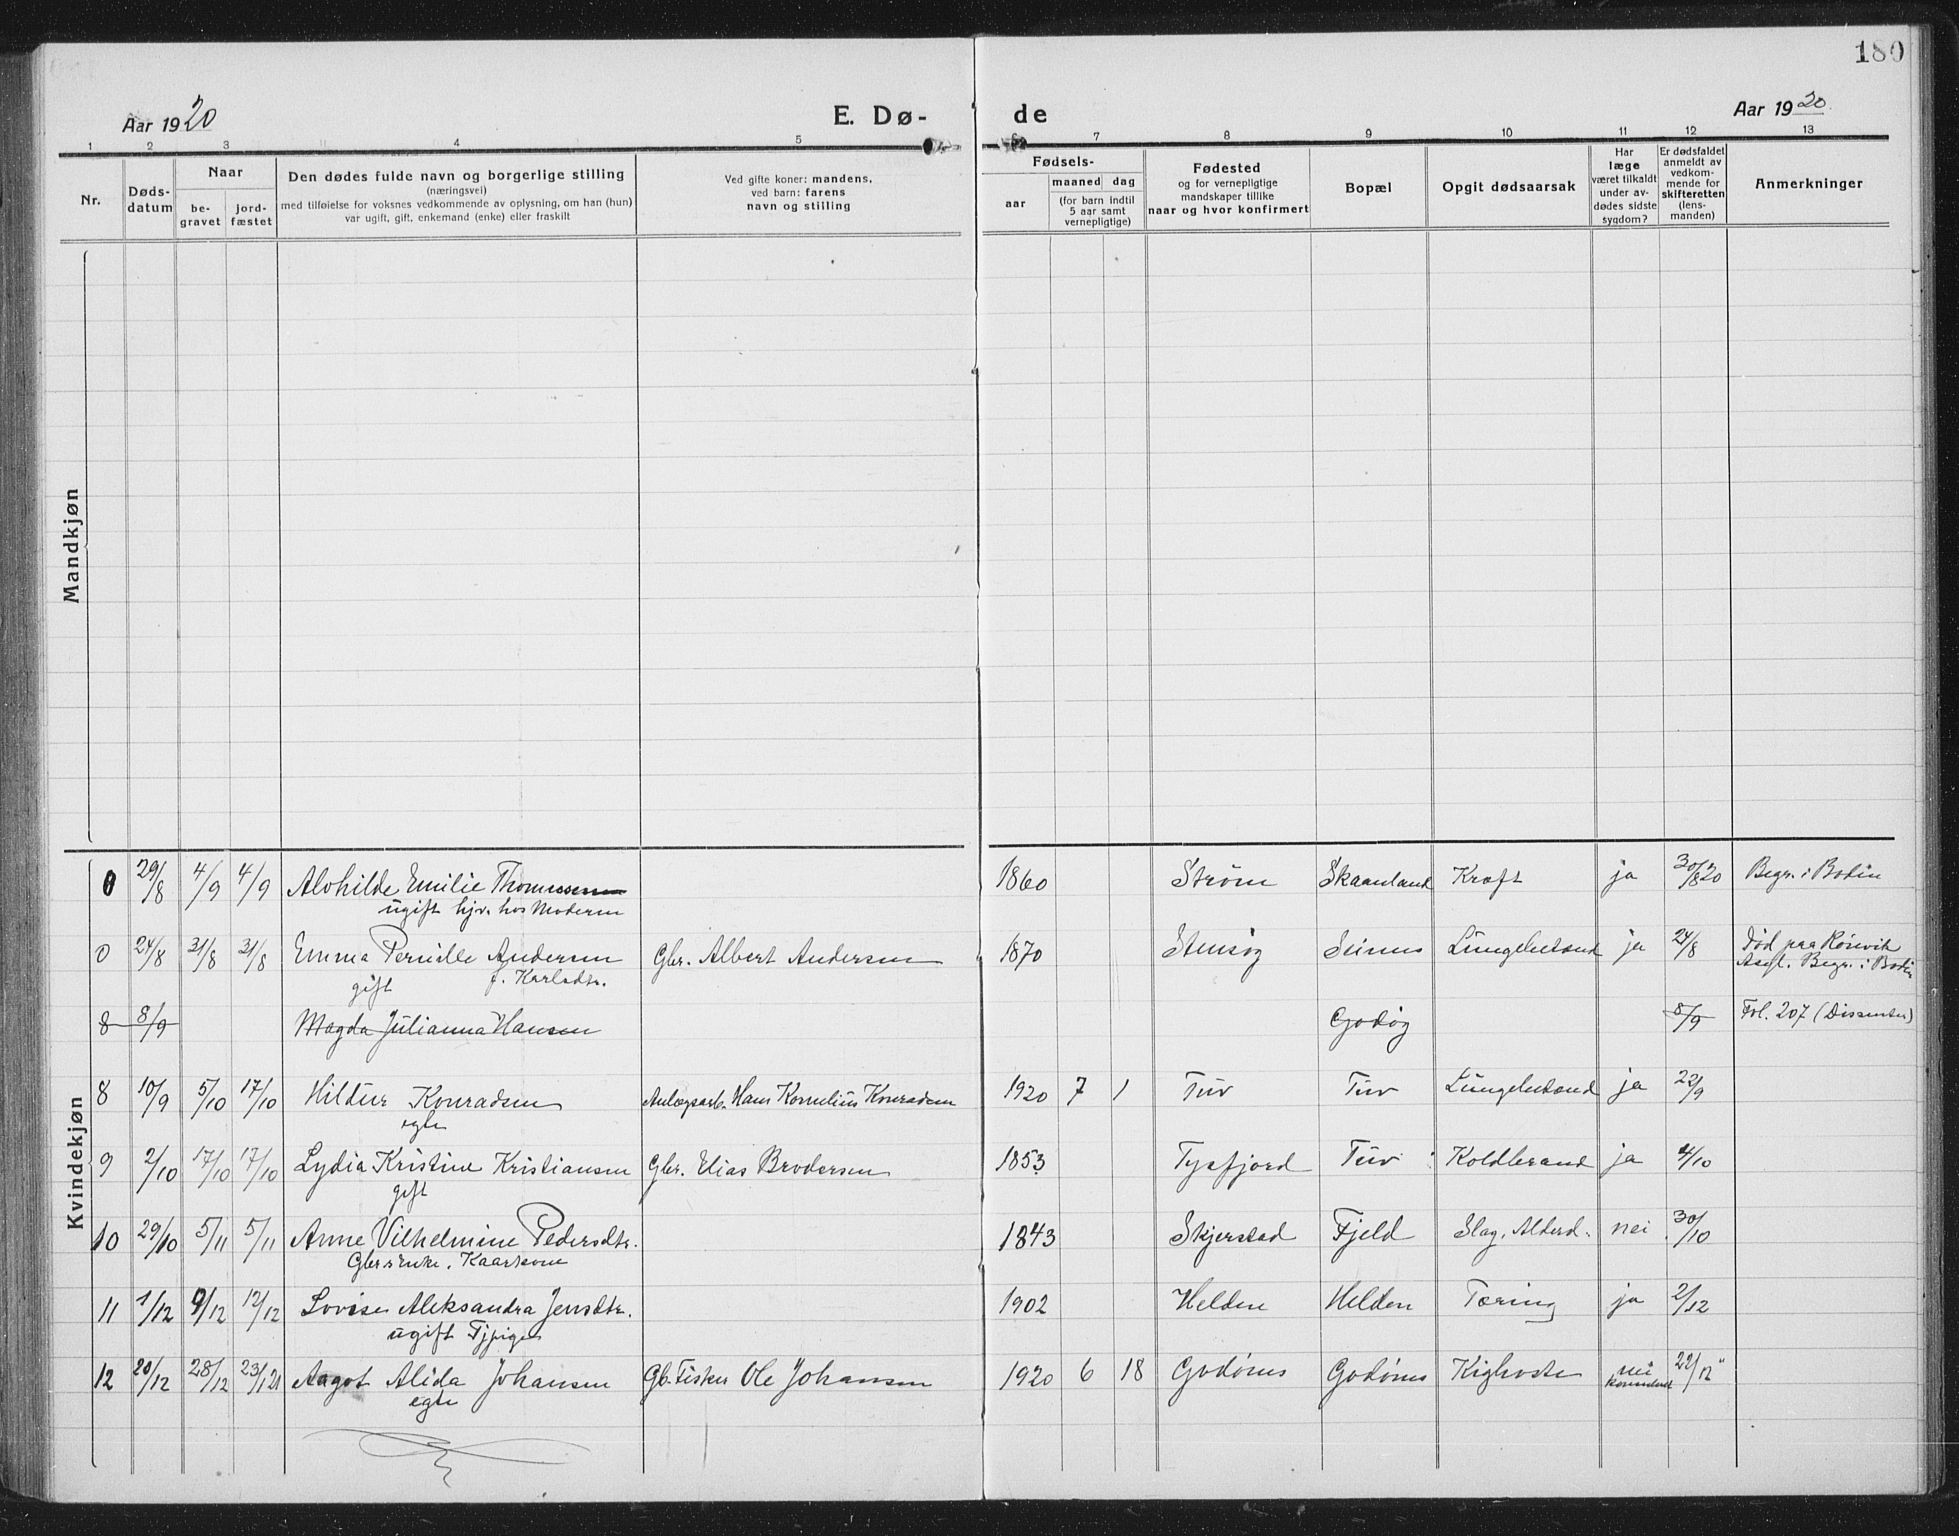 180
Aar 1920
E. Dø-
de
Aar 1920
1 2 3 4 5 6 7 8 9 10 11 12 13
Nr.
Døds-
datum
Naar
be-
gravet
jord-
fæstet
Den dødes fulde navn og borgerlige stilling
(næringsvei)
med tilføielse for voksnes vedkommende av oplysning, om han (hun)
var ugift, gift, enkemand (enke) eller fraskilt
Ved gifte koner: mandens,
ved barn: farens
navn og stilling
Fødsels-
aar
maaned dag
(for barn indtil
5 aar samt
vernepligtige)
Fødested
og for vernepligtige
mandskaper tillike
naar og hvor konfirmert
Bopæl
Opgit dødsaarsak
Har
læge
været tilkaldt
under av-
dødes sidste
sygdom?
Er dødsfaldet
anmeldt av
vedkom-
mende for
skifteretten
(lens-
manden)
Anmerkninger
Mandkjøn
Kvindekjøn
0 29/8 4/9 4/9 Alvhilde Emilie Thomassen 1860 Strøm Skaanland Kræft ja 30/8 20 Begr. i Bodin
ugift hjv. hos Moderen
0 24/8 31/8 31/8 Emma Pernille Andersen Gbr. Albert Andersen 1870 Stensøg Seines Lungebetænd ja 24/8 Død paa Rösvik
gift f. Karlsdtr. Asyl. Begr. i Bodin
8 8/9 Magda Julianna Hansen Godøg 8/9 Fol. 207 (Dissenter)
8 10/9 5/10 17/10 Hildur Konradsen Anlægsarb. Hans Kornelius Konradsen 1920 7 1 Tuv Tuv Lungebetænd ja 22/9
egte
9 2/10 17/10 17/10 Lydia Kristine Kristiansen Gbr. Elias Brodersen 1853 Tysfjord Tuv Koldbrand ja 4/10
gift
10 29/10 5/11 5/11 Anne Vilhelmine Pedersdtr. 1843 Skjerstad Fjeld Slag, Alderd. nei 30/10
Gbrs Enke. Kaarkone
11 1/12 9/12 12/12 Lovise Aleksandra Jensdtr. 1902 Helden Helden Tæring ja 2/12
ugift Tjpige
12 20/12 28/12 23/1 21 Aagot Alida Johansen Gb. Fisker Ole Johansen 1920 6 18 Godønes Godønes Kighoste nei 22/12 "
egte